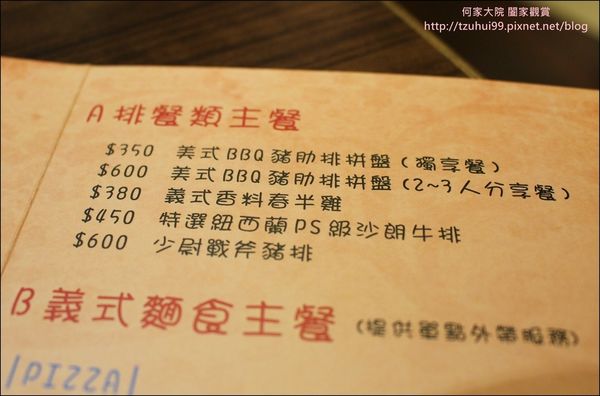 何家大院 闔家觀賞
http://tzuhui99.pixnet.net/blog
A 排餐類主餐
$350 美式BBQ豬肋排拼盤(獨享餐)
$600 美式BBQ豬肋排拼盤(2~3人分享餐)
$380 義式香料春半雞
$450 特選紐西蘭PS級沙朗牛排
$600 少尉戰斧豬排
B 義式麵食主餐 (提供單點外帶服務)
|PIZZA|